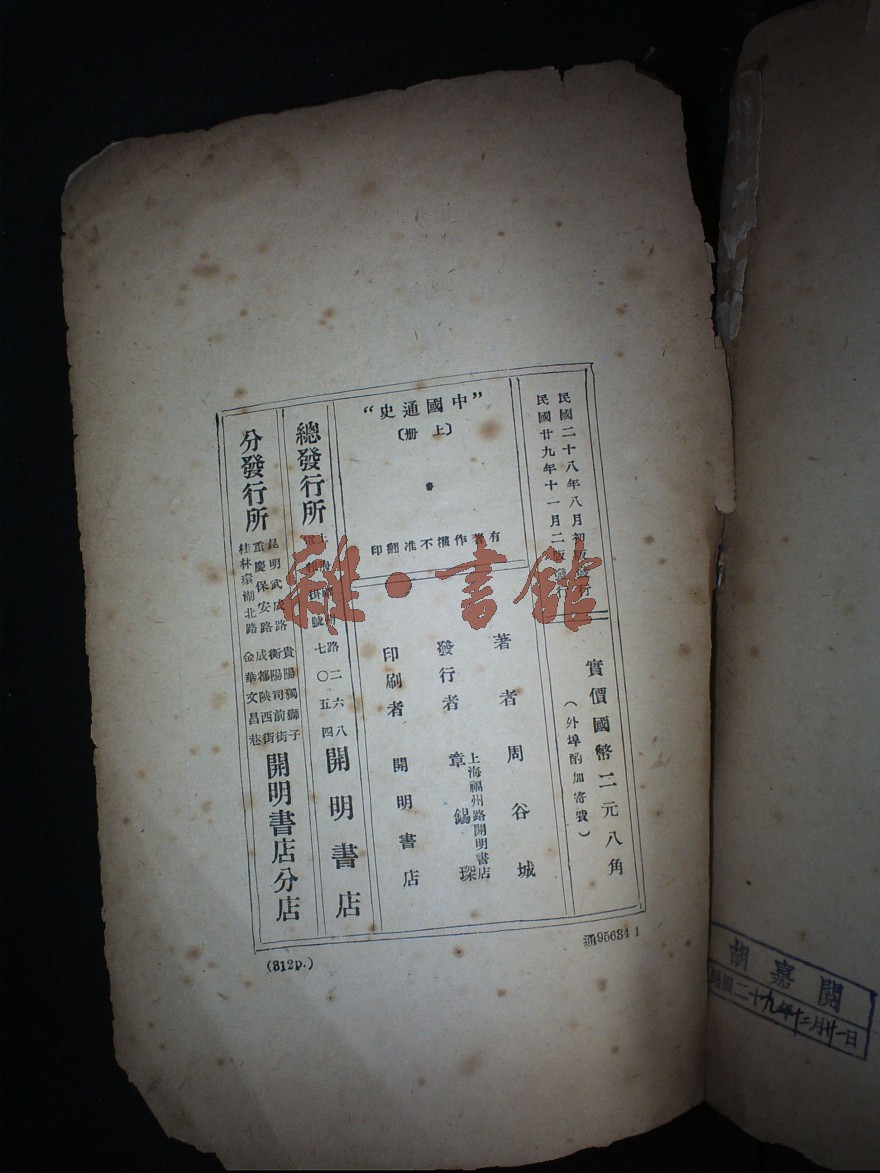 民國二十八年八月初版發行
民國廿九年十一月二版發行
實價國幣二元八角
（外埠酌加寄費）
“中國通史”
〔上冊〕
有著作權不准翻印
著者 周谷城
發行者 章錫琛
上海福州路開明書店
印刷者 開明書店
總發行所
路二六八
七〇五四
開明書店
分發行所
昆明武成路
重慶保安路
桂林環湖北路
貴陽獨獅子
衡陽司前街
成都陝西街
金華文昌巷
開明書店分店
(312p.)
通95634 1
雜·書館
胡嘉閱
民國二十九年十二月廿一日